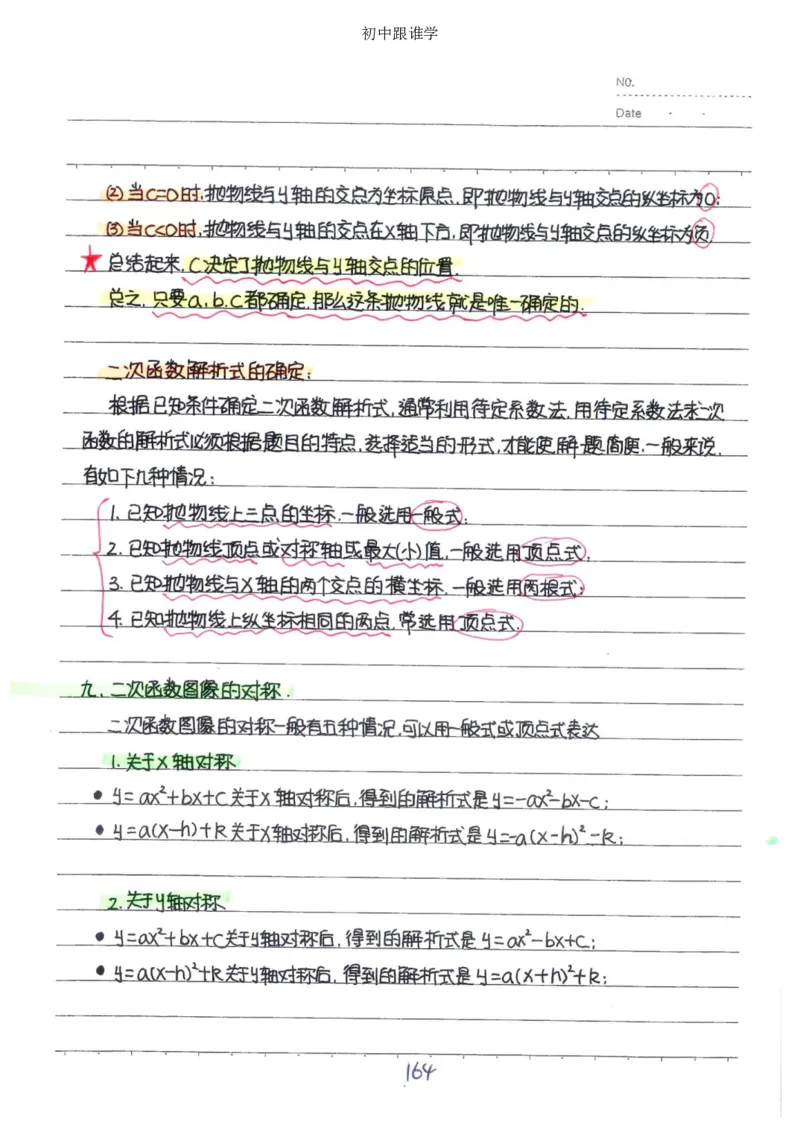 初中跟谁学
NO.
Date
(2)当C=0时,抛物线与y轴的交点为坐标原点,即抛物线与y轴交点的纵坐标为0;
(3)当C<0时,抛物线与y轴的交点在X轴下方,即抛物线与y轴交点的纵坐标为负
★总结起来,C决定了抛物线与y轴交点的位置.
总之,只要a,b,c都确定,那么这条抛物线就是唯一确定的.
二次函数解析式的确定:
根据已知条件确定二次函数解析式,通常利用待定系数法.用待定系数法求二次
函数的解析式必须根据题目的特点,选择适当的形式,才能使解题简便.一般来说,
有如下几种情况:
1.已知抛物线上三点的坐标,一般选用一般式;
2.已知抛物线顶点或对称轴或最大(小)值,一般选用顶点式;
3.已知抛物线与X轴的两个交点的横坐标,一般选用两根式;
4.已知抛物线上纵坐标相同的两点,常选用顶点式.
九、二次函数图像的对称.
二次函数图像的对称一般有五种情况,可以用一般式或顶点式表达
1.关于X轴对称
• y=ax²+bx+c关于X轴对称后,得到的解析式是y=-ax²-bx-c;
• y=a(x-h)+k关于X轴对称后,得到的解析式是y=-a(x-h)²-k;
2.关于y轴对称
• y=ax²+bx+c关于y轴对称后,得到的解析式是y=ax²-bx+c;
• y=a(x-h)²+k关于y轴对称后,得到的解析式是y=a(x+h)²+k;
164